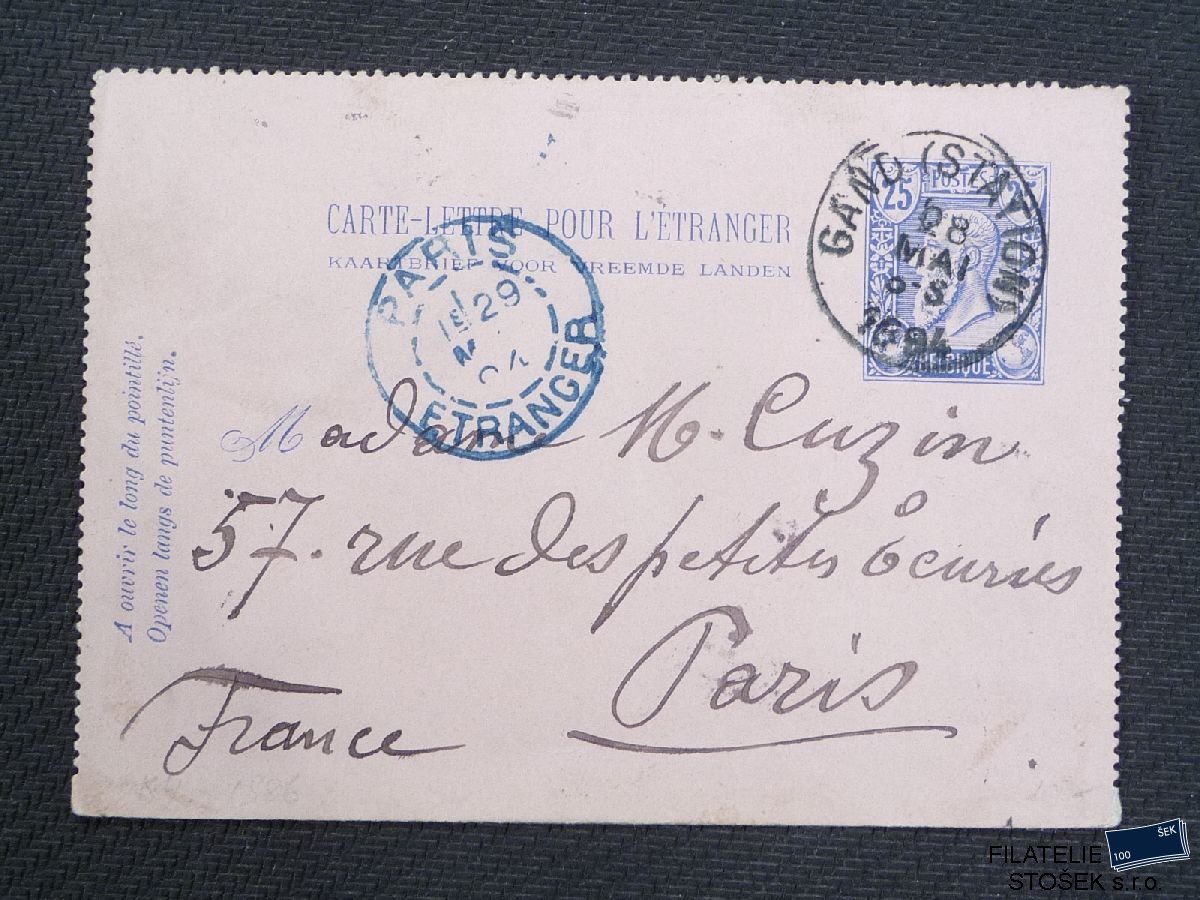 CARTE-LETTRE POUR L'ÉTRANGER
KAARTBRIEF VOOR VREEMDE LANDEN
25 POSTES
BELGIQUE
GAND (STATION)
28
MAI
1894
PARIS
29
ETRANGER
A ouvrir le long du pointillé.
Openen langs de puntenlijn.
Madame M. Cuzin
57. rue des petites Écuries
Paris
France
FILATELIE
STOŠEK s.r.o.
100 ŠEK